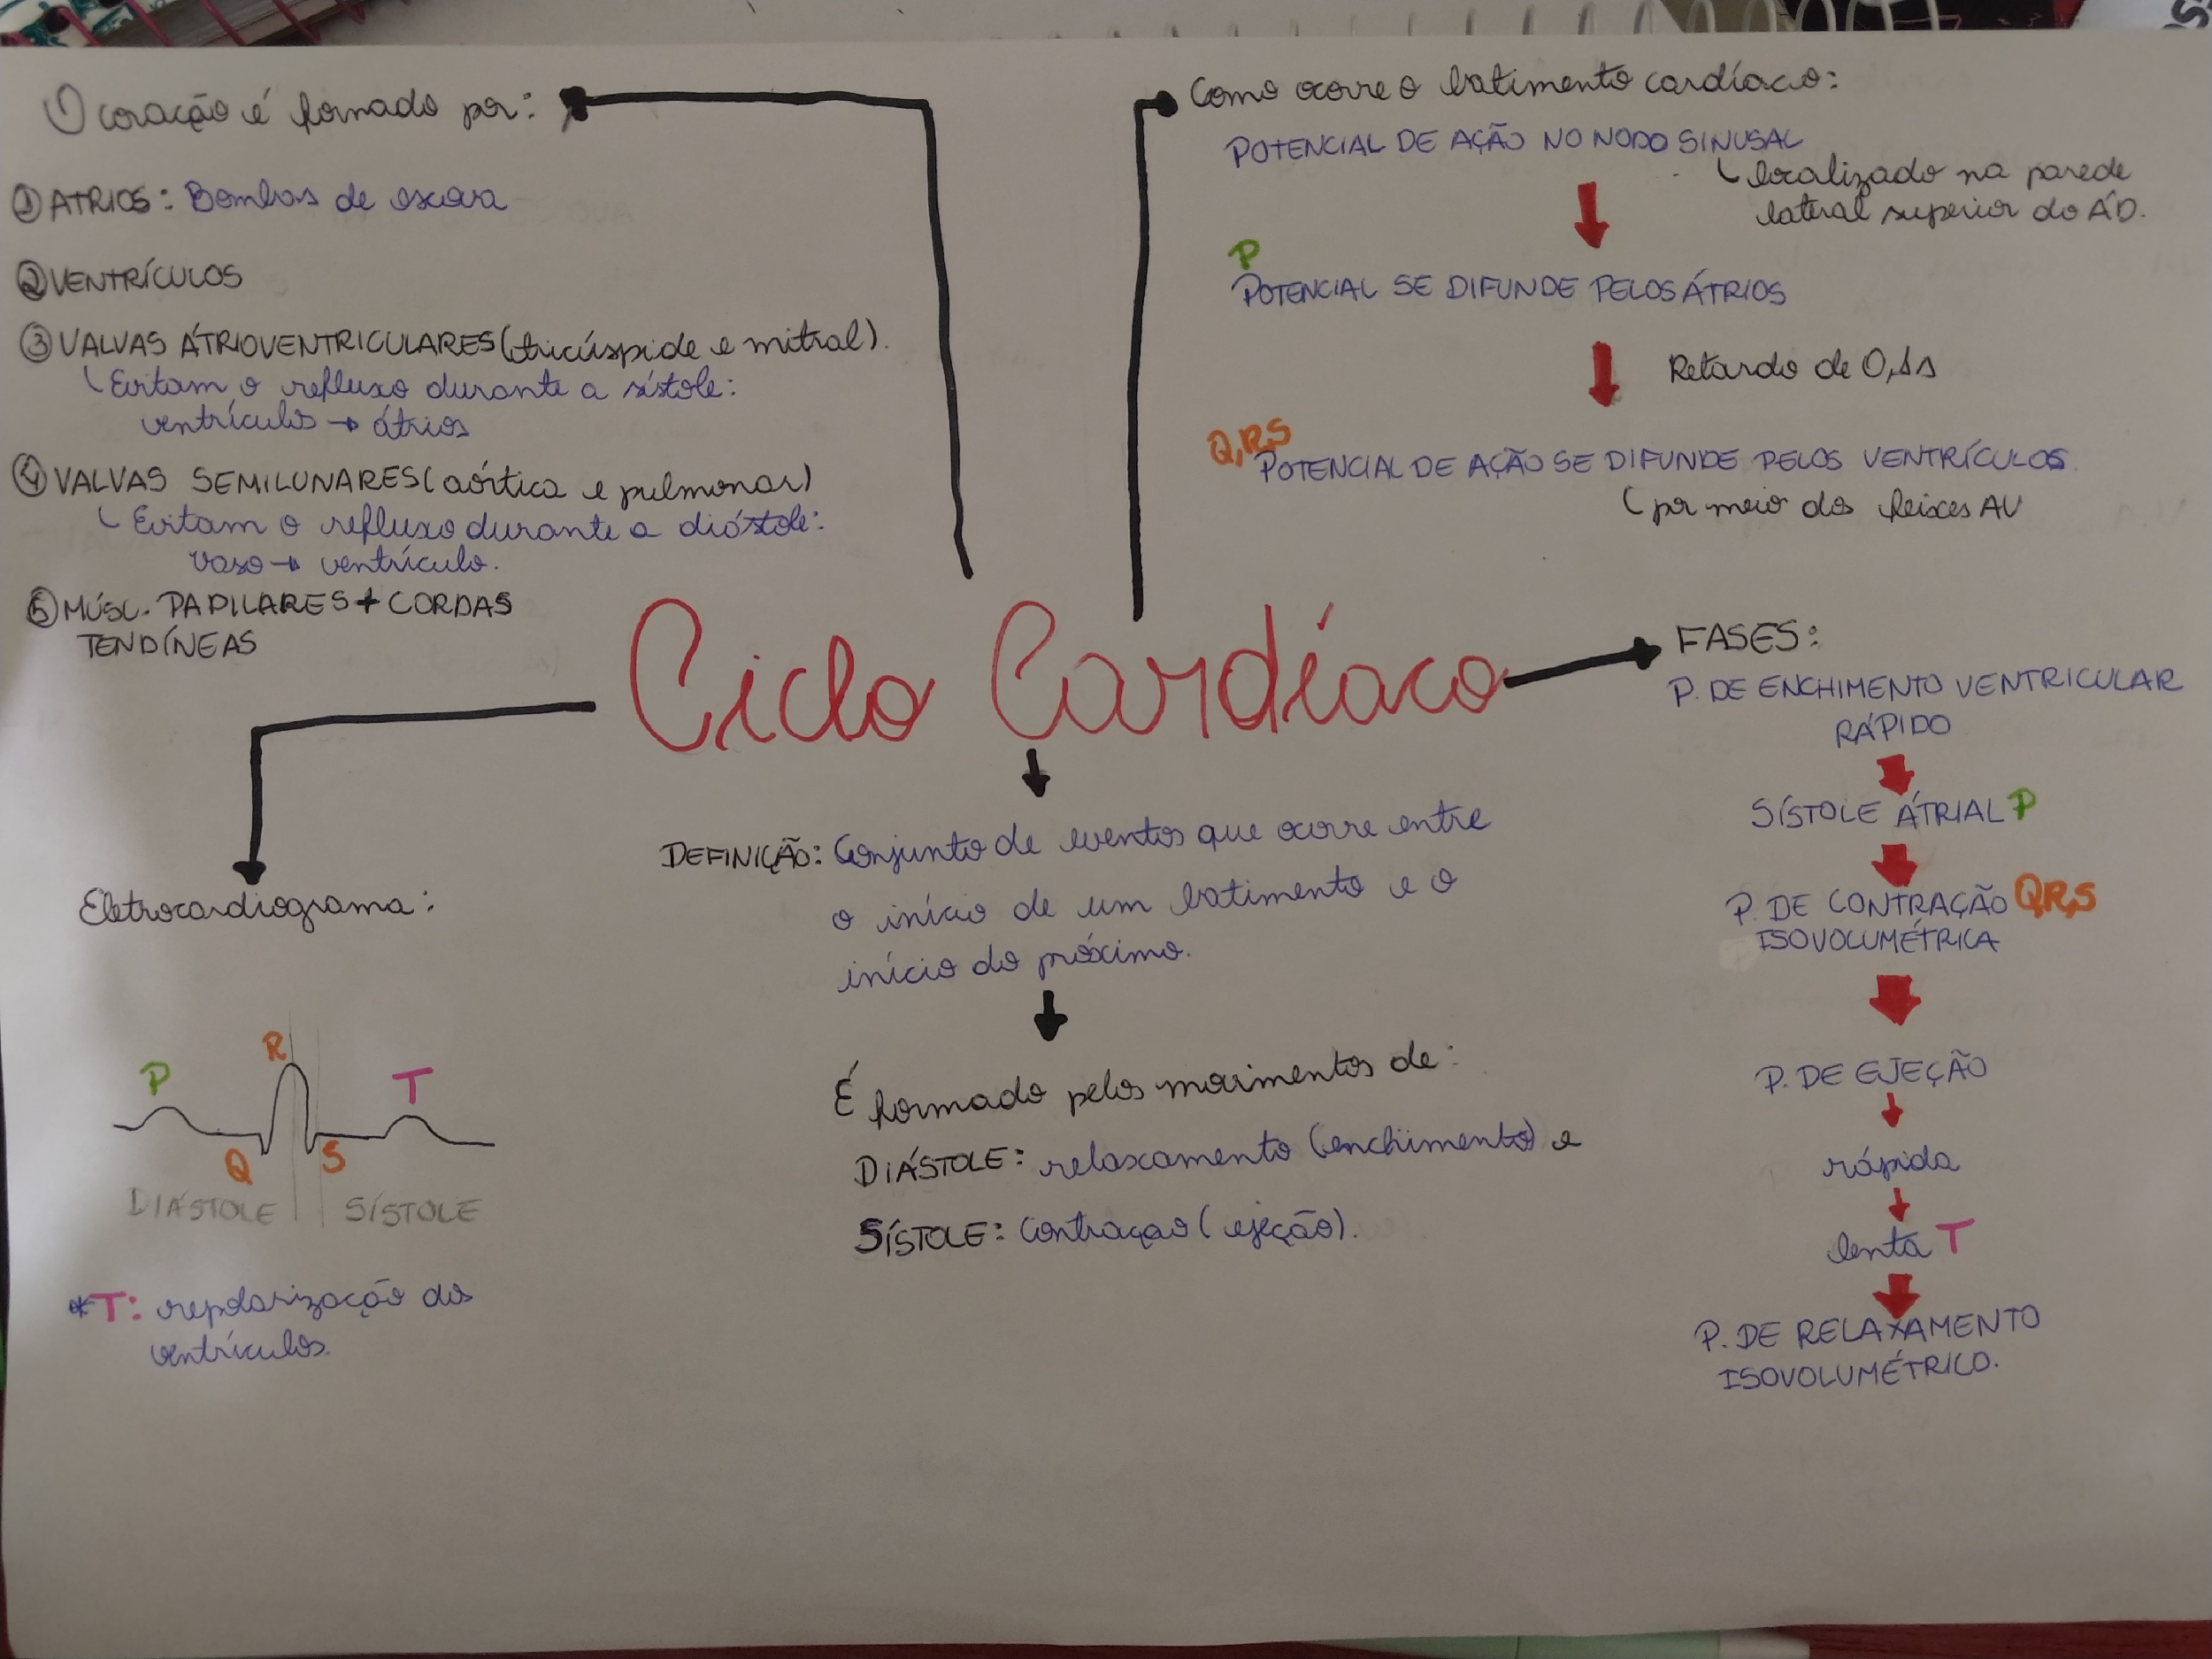 O coração é formado por:
① ATRIOS: Bombas de escova
② VENTRÍCULOS
③ VALVAS ÁTRIOVENTRICULARES (tricúspide e mitral).
Evitam o refluxo durante a sístole:
ventrículos → átrios
④ VALVAS SEMILUNARES (aórtica e pulmonar)
Evitam o refluxo durante a diástole:
vaso → ventrículo.
⑤ MÚSC. PAPILARES + CORDAS
TENDÍNEAS
Como ocorre o batimento cardíaco:
POTENCIAL DE AÇÃO NO NODO SINUSAL
localizado na parede
lateral superior do ÁD.
P
POTENCIAL SE DIFUNDE PELOS ÁTRIOS
Retardo de 0,1s
Q,R,S
POTENCIAL DE AÇÃO SE DIFUNDE PELOS VENTRÍCULOS.
por meio dos feixes AV
Ciclo Cardíaco
FASES:
P. DE ENCHIMENTO VENTRICULAR
RÁPIDO
SÍSTOLE ÁTRIAL P
P. DE CONTRAÇÃO Q,R,S
ISOVOLUMÉTRICA
P. DE EJEÇÃO
rápida
lenta T
P. DE RELAXAMENTO
ISOVOLUMÉTRICO.
DEFINIÇÃO: Conjunto de eventos que ocorre entre
o início de um batimento e o
início do próximo.
É formado pelos movimentos de:
DIÁSTOLE: relaxamento (enchimento) e
SÍSTOLE: Contraçao (ejeção).
Eletrocardiograma:
R
P
T
Q
S
DIÁSTOLE
SÍSTOLE
*T: repolarização dos
ventrículos.